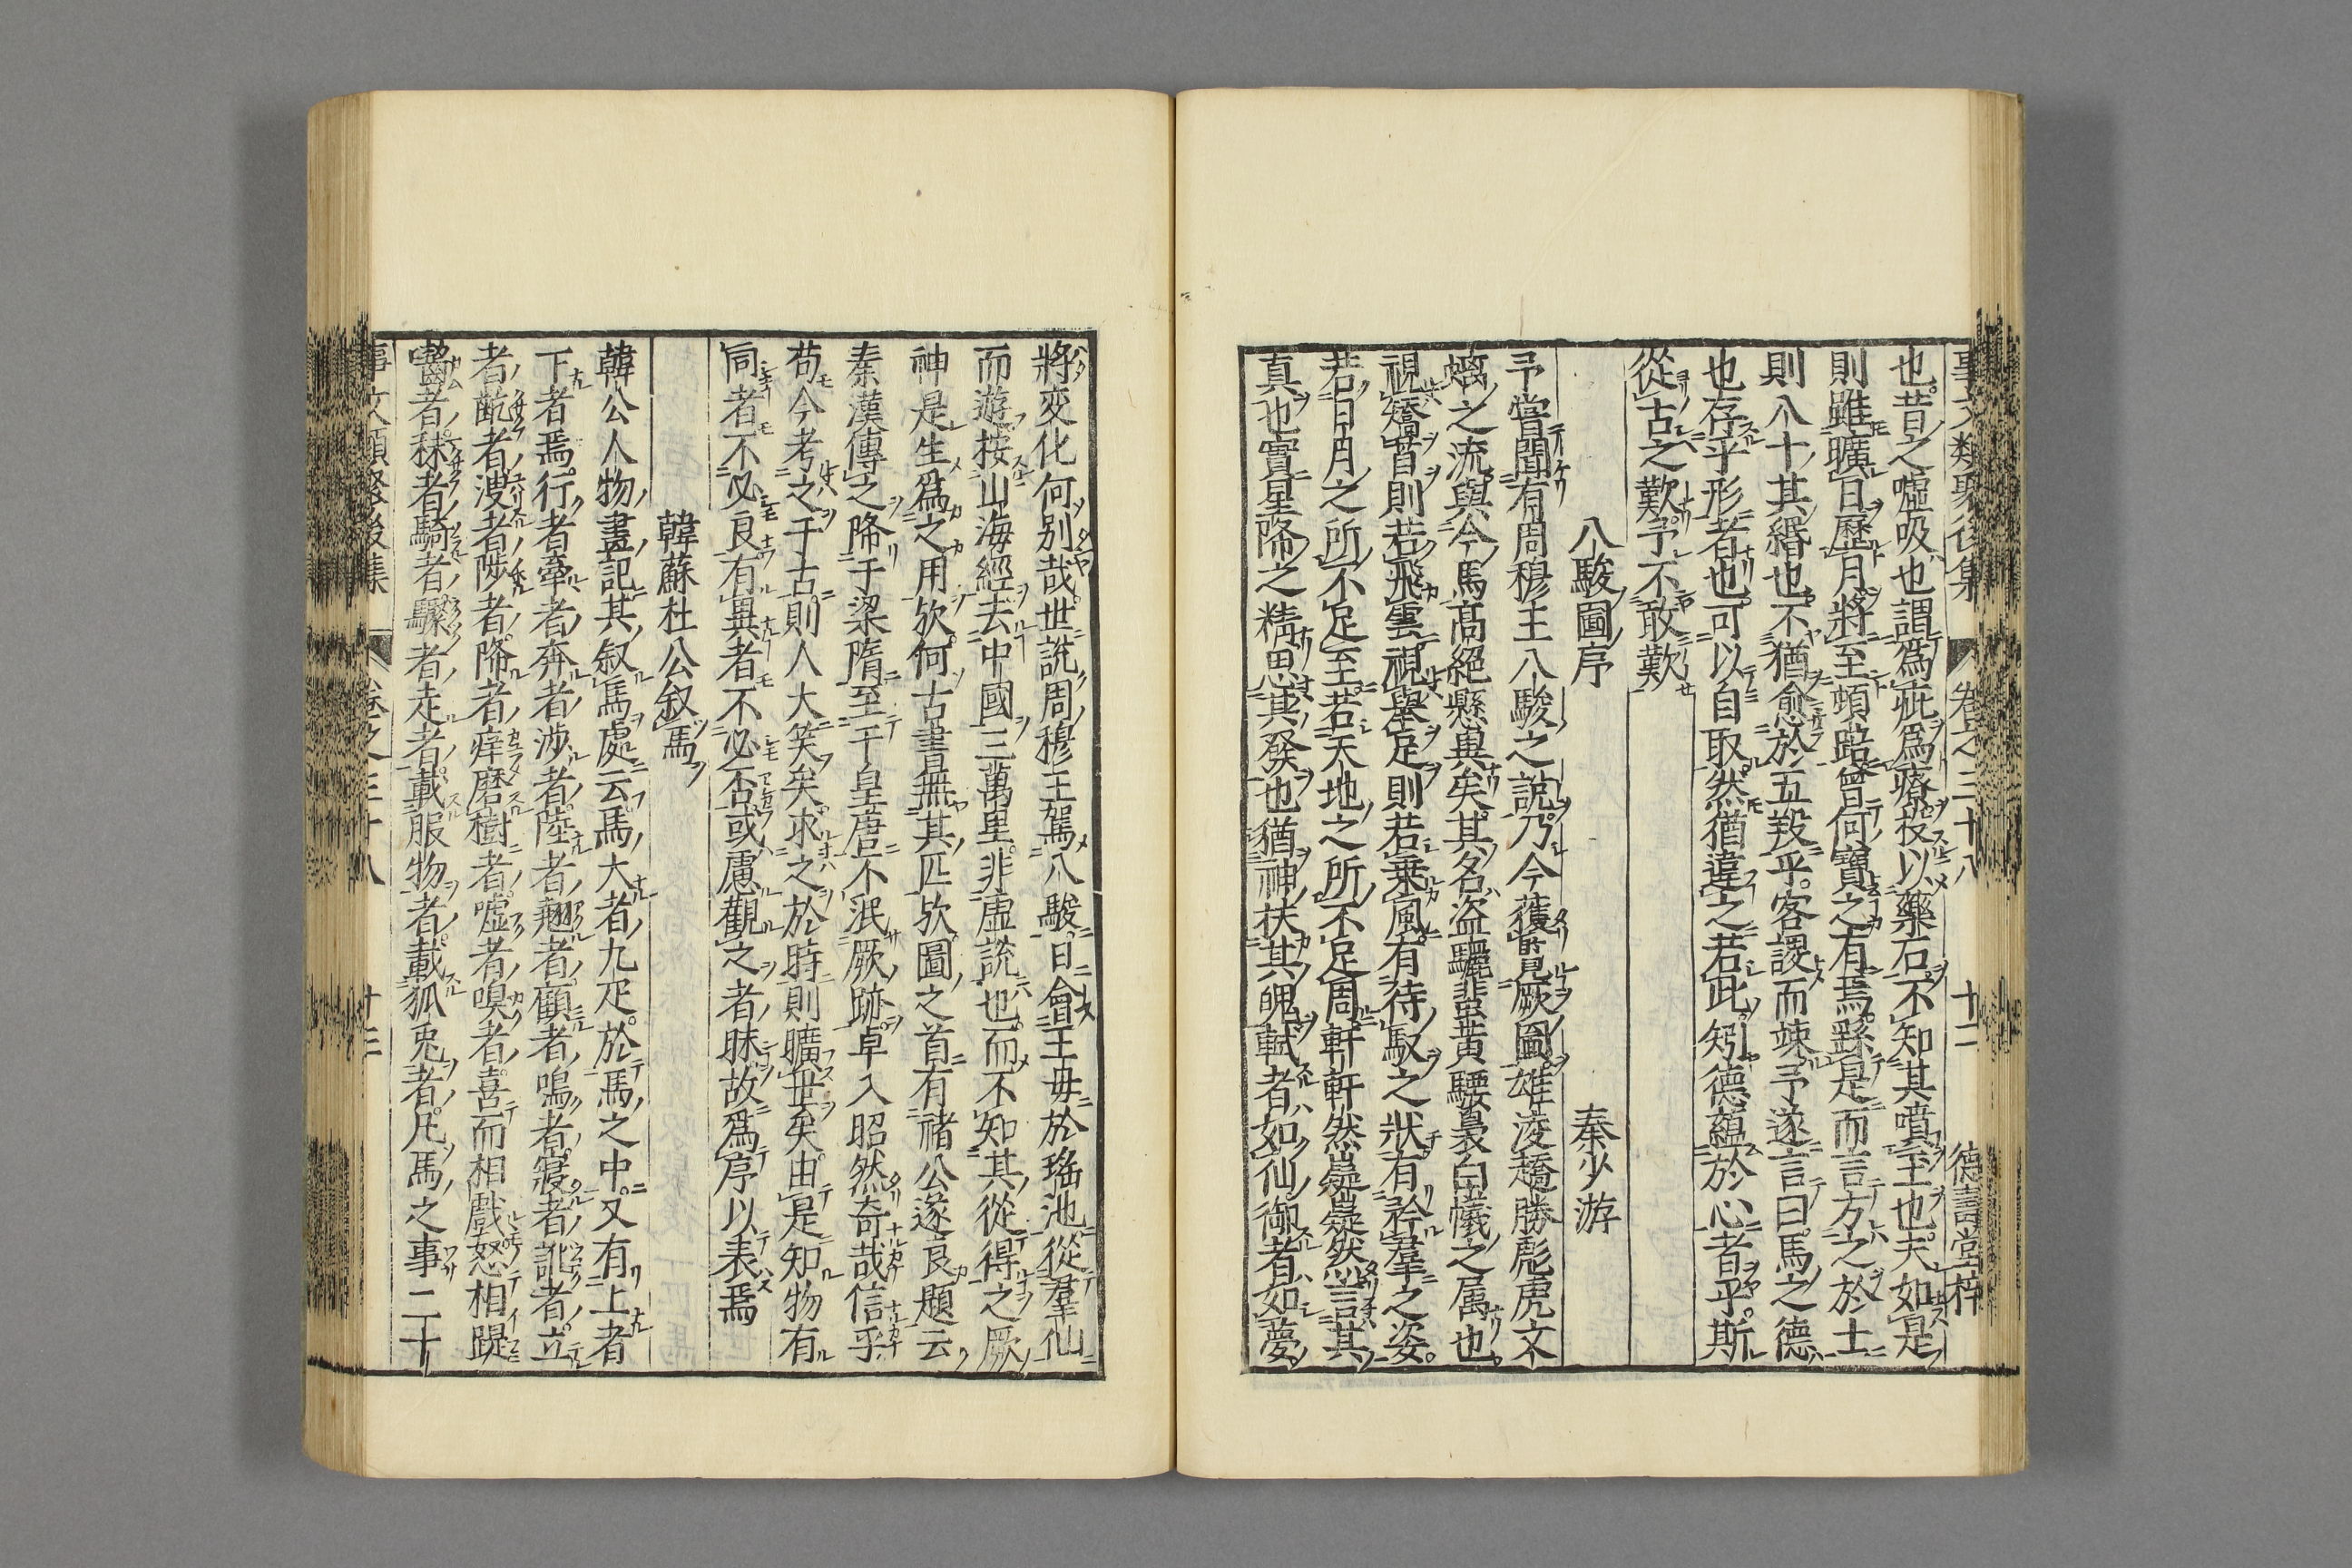 事文類聚後集 卷之三十八 十二 德壽堂梓
也昔之噓吸也謂爲疵爲癘投以藥石不知其噴至也夫如是
則雖曠日歷月將至頓踣曾何寶之有焉繇是而言方之於士
則八十其緡也不猶愈於五羖乎客謖而竦予遂言曰馬之德
也存乎形者也可以自取然猶違之若此矧德蘊於心者乎斯
從古之歎予不敢歎
八駿圖序 秦少游
予嘗聞有周穆王八駿之說乃今獲覽厥圖雄淩趫勝彪虎文
螭之流與今馬高絕懸異矣其名盜驪蜚黃騕褭白㹑之属也
視矯首則若飛雲視舉足則若乗風有待馭之狀有矜羣之姿
若日月之所不足至若天地之所不足周軒軒然嶷嶷然言其
真也實星降之精思其發也猶神扶其魄軾者如仙御者如夢
將变化何别哉世說周穆王駕八駿日會王母於瑤池從羣仙
而遊按山海經去中國三萬里非虛說也而不知其從得之厥
神是生爲之用欤何古書無其匹欤圖之首有褚公遂良題云
秦漢傳之降于梁隋至于皇唐不泯厥跡卓入昭然奇哉信乎
苟今考之于古則人大笑矣求之於時則曠世矣由是知物有
同者不必良有異者不必否或慮觀之者昧故爲序以表焉
韓蘇杜公叙馬
韓公人物畫記其叙馬處云馬大者九疋於馬之中又有上者
下者焉行者牽者奔者涉者陸者翹者顧者鳴者寢者訛者立
者齕者溲者陟者降者痒磨樹者噓者嗅者喜而相戲怒相踶
齧者秣者騎者驟者走者載服物者載狐兎者凡馬之事二十
事文類聚後集 卷之三十八 十三